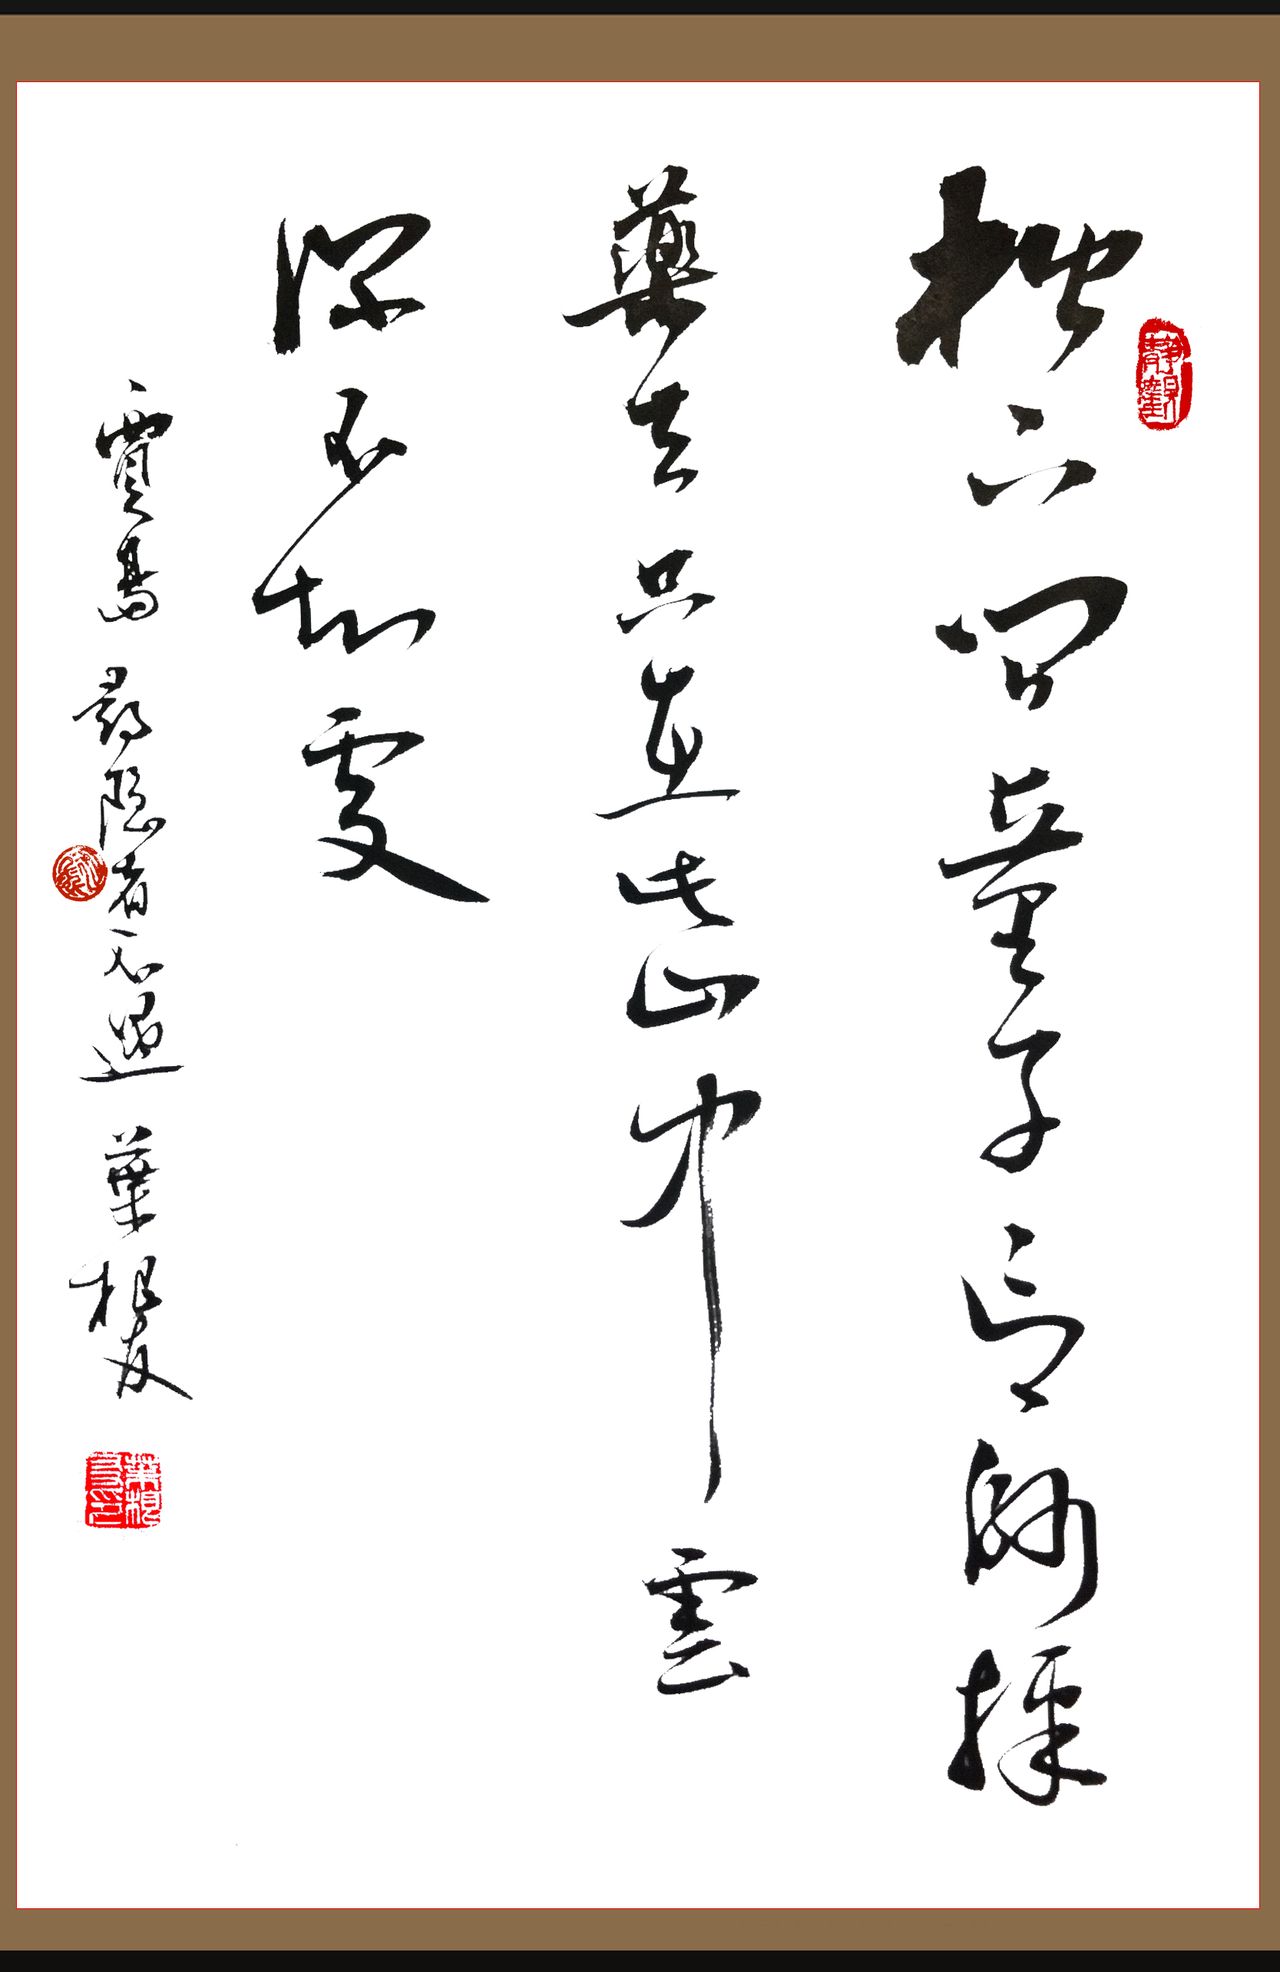 松下问童子言師採
藥去只在此山中雲
深不知處
賈島 尋隱者不遇 葉根友
靜觀
葉根友印